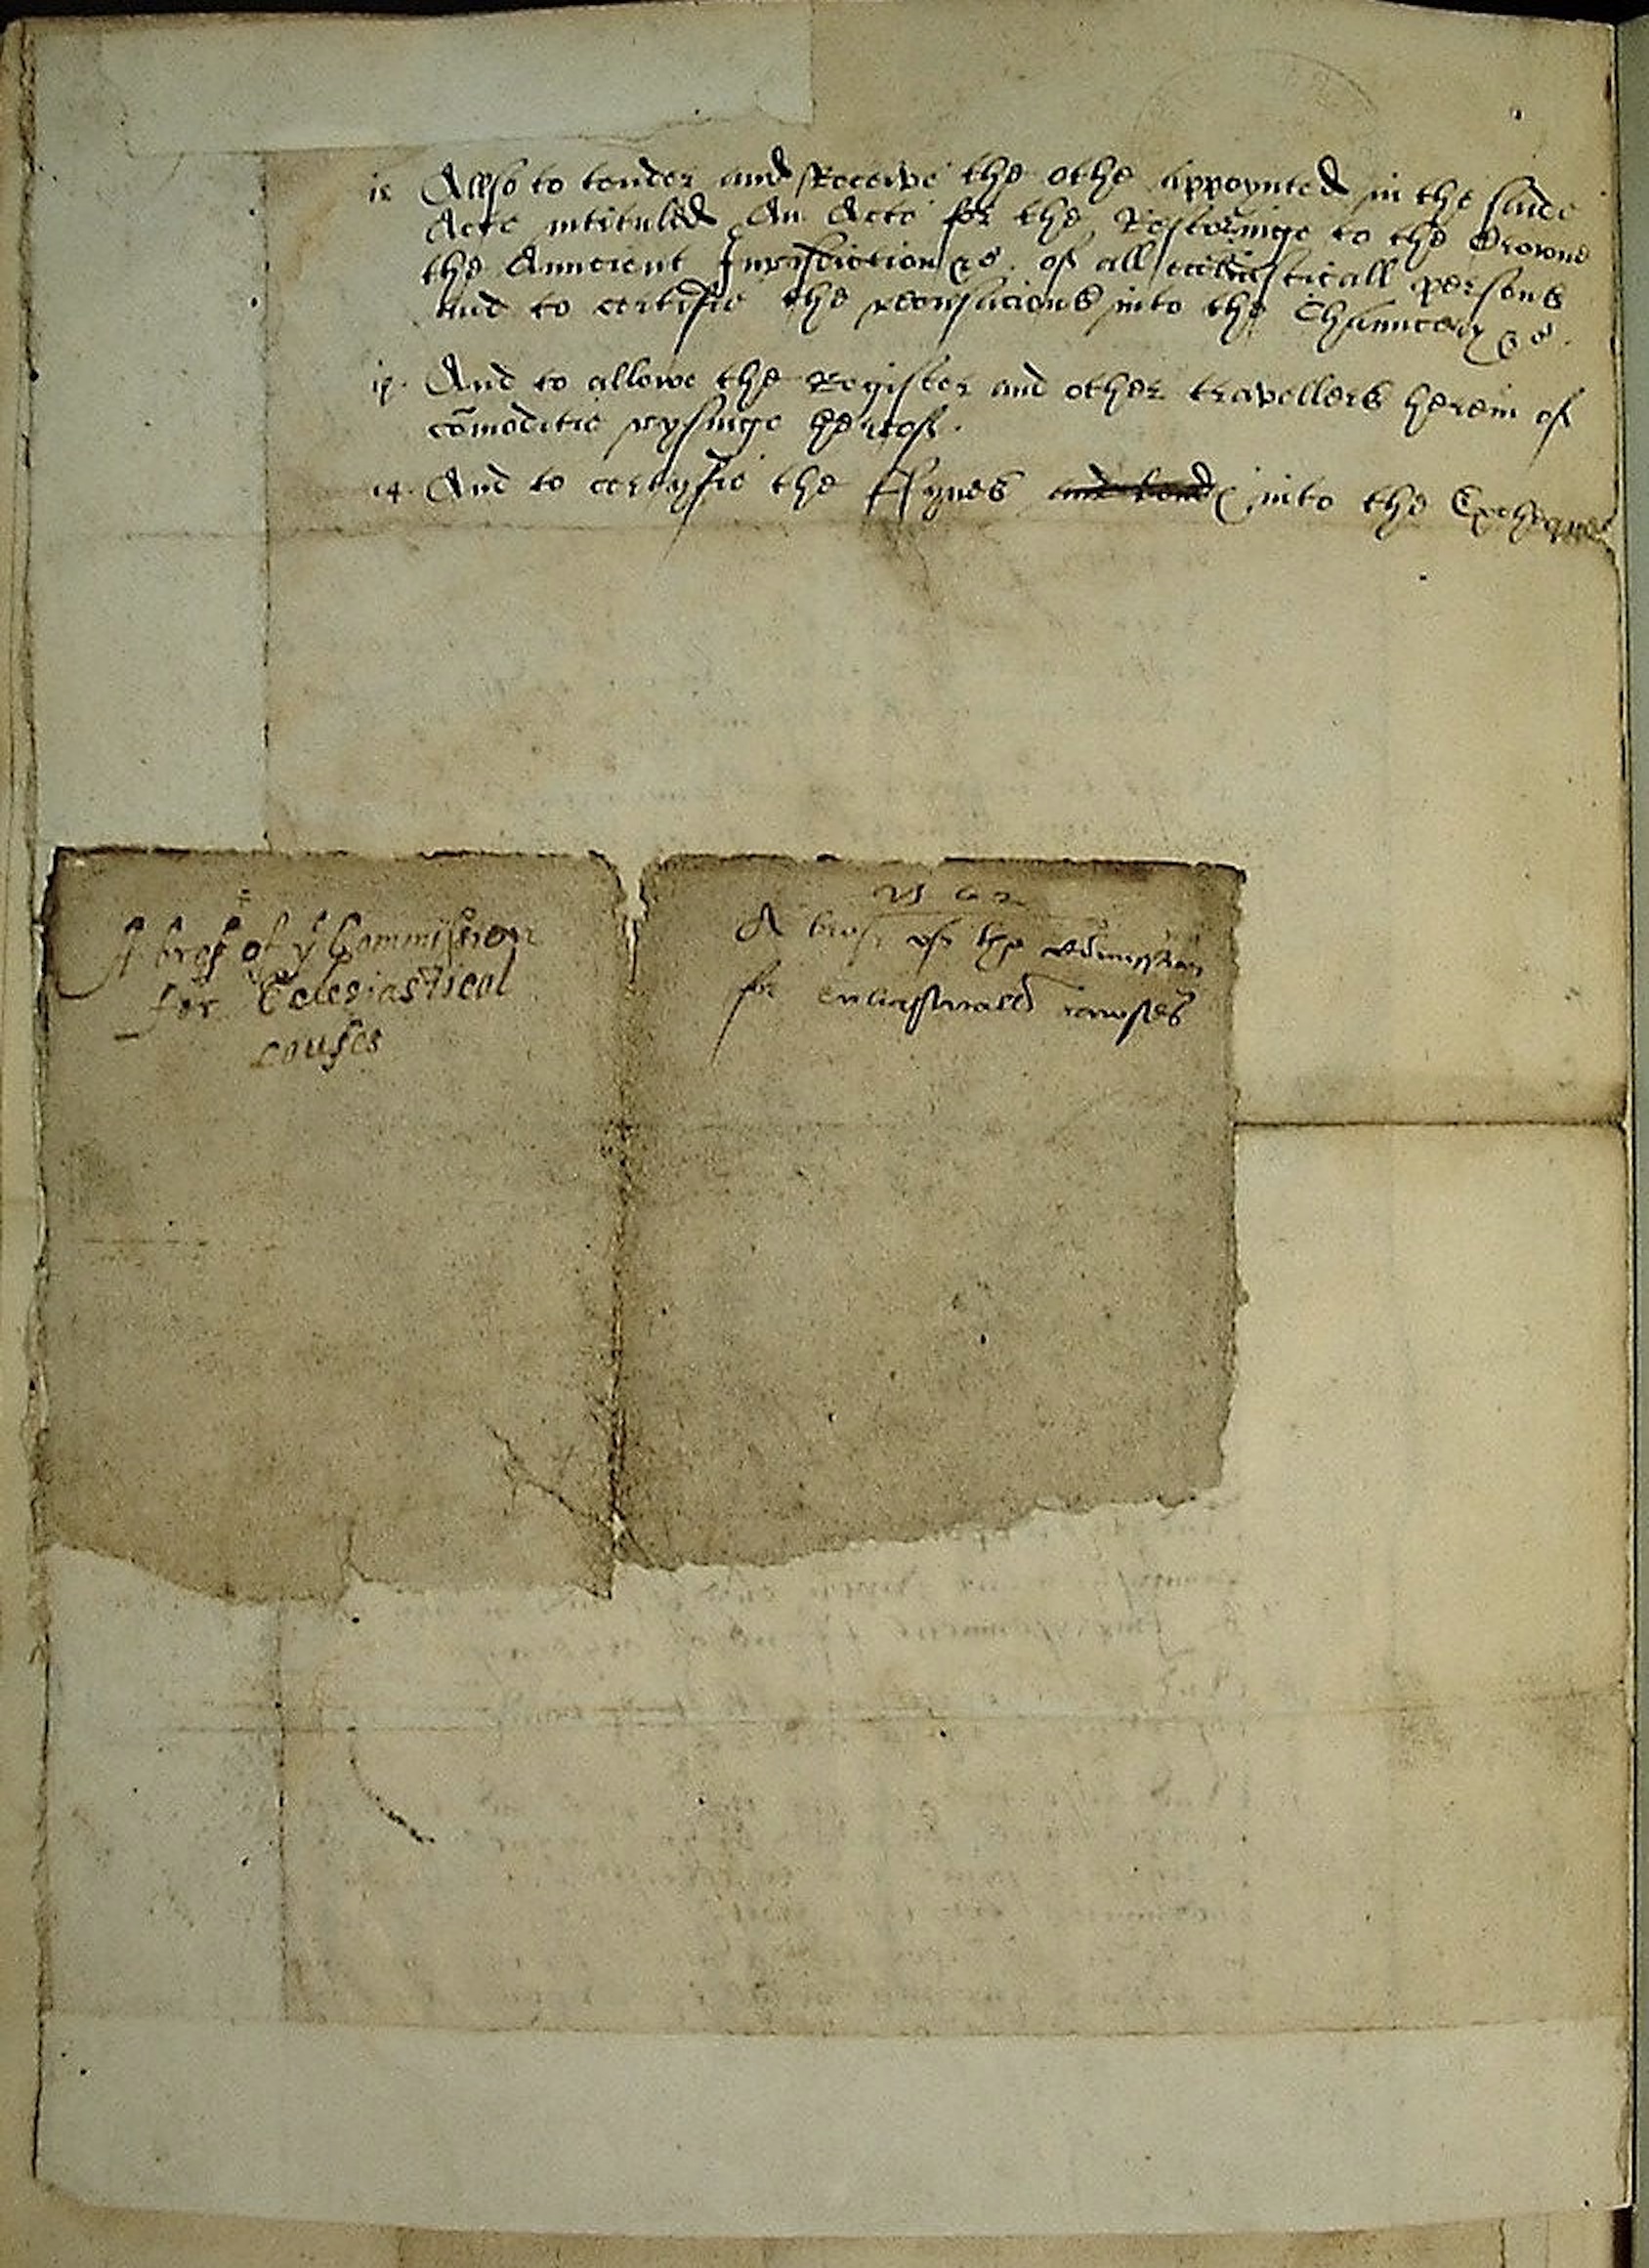 Allso to tender and Receive the othe appoynted in the saide
Acte intituled An Acte for the Restoringe to the Crowne
the Auncient Jurisdiction &c. of all ecclesiasticall persons
And to certifie the recusacions into the Chauncery &c.
And to allowe the Register and other travellers herein of
com̃oditie rysinge hereof.
14. And to certyfie the Fynes into the Exchequer
A breef of yᵉ Commission
for Eclesiastical
causes
A breif of the Com̃ission
for ecclīasticall causes